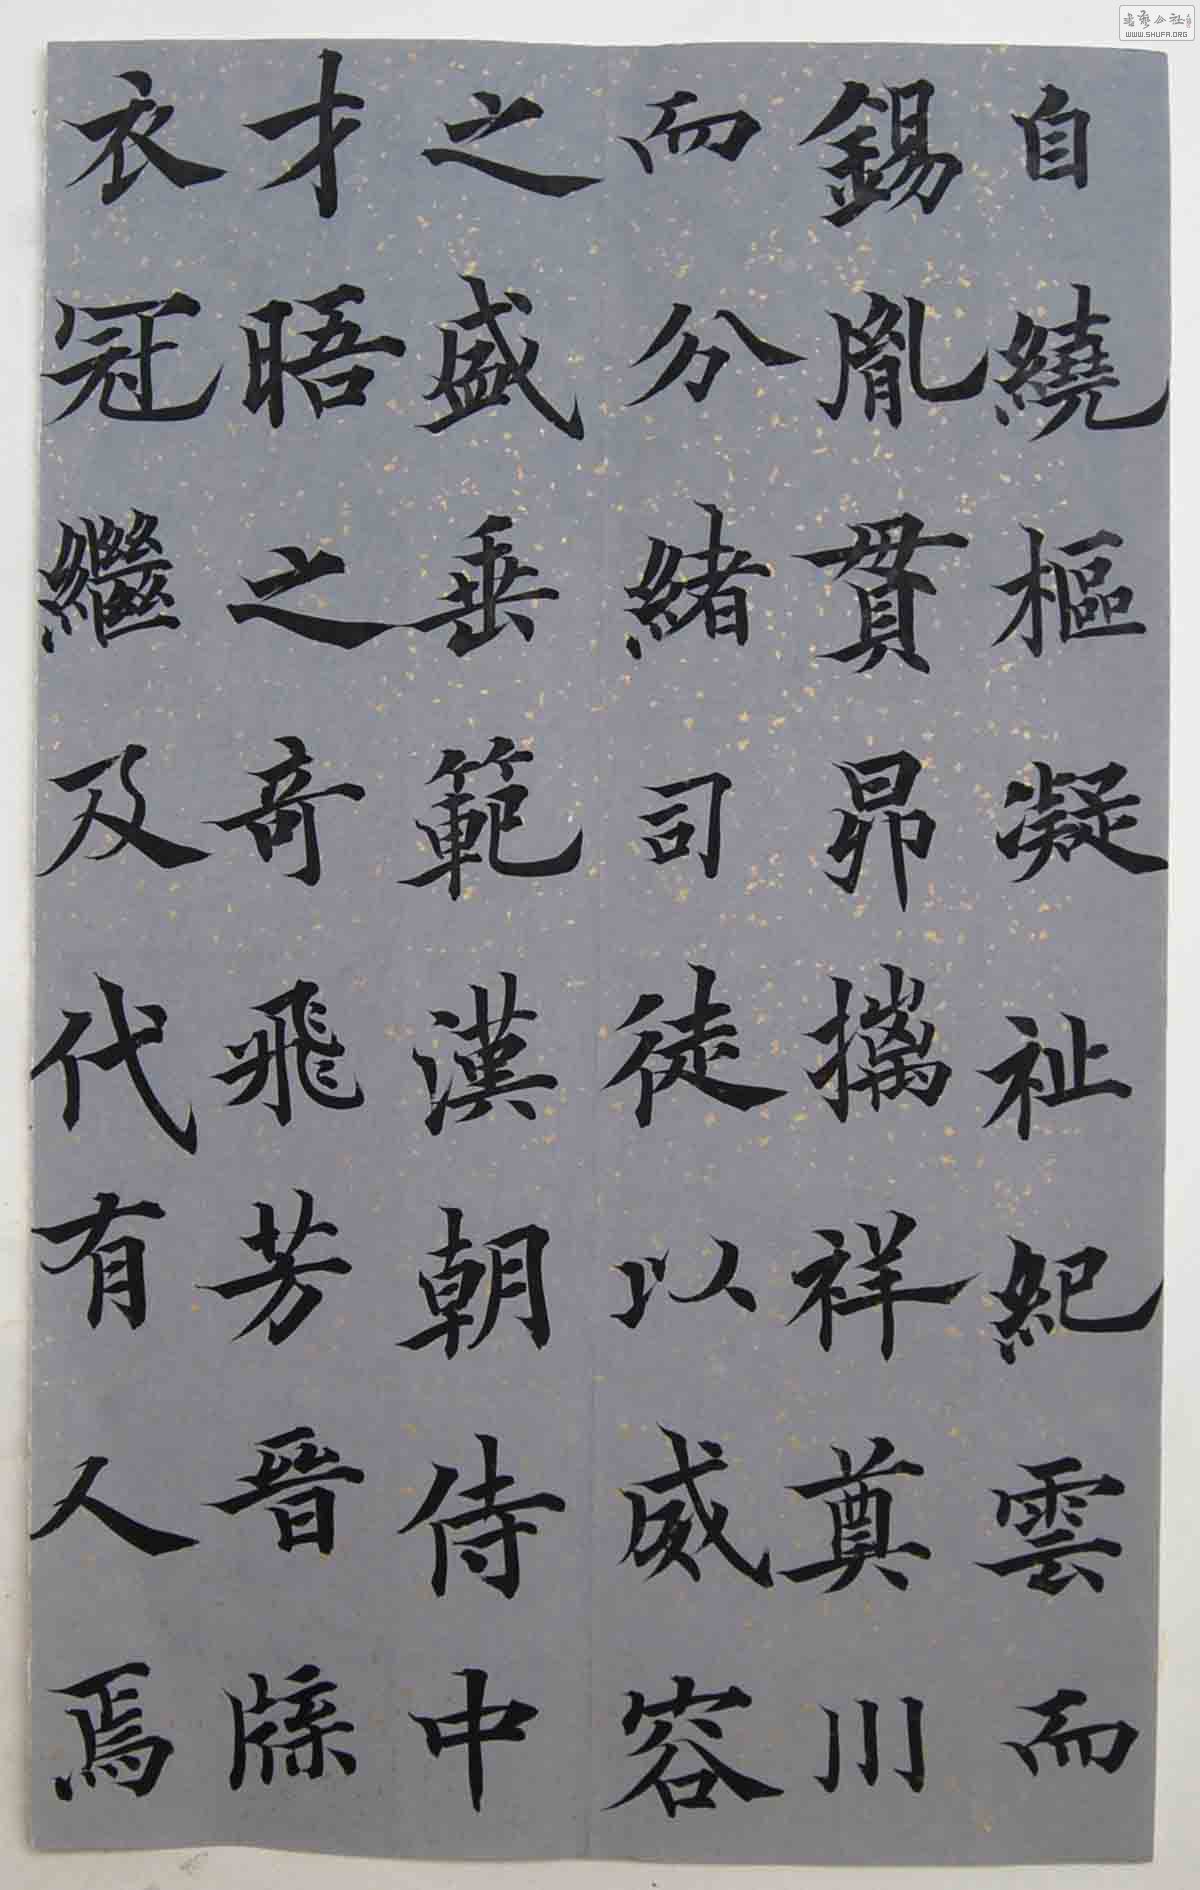 自繞樞凝祉紀雲而
錫胤貫昴攜祥奠川
而分緒司徒以威容
之盛垂範漢朝侍中
才晤之奇飛芳晉牒
衣冠繼及代有人焉
書藝公社
WWW.SHUFA.ORG